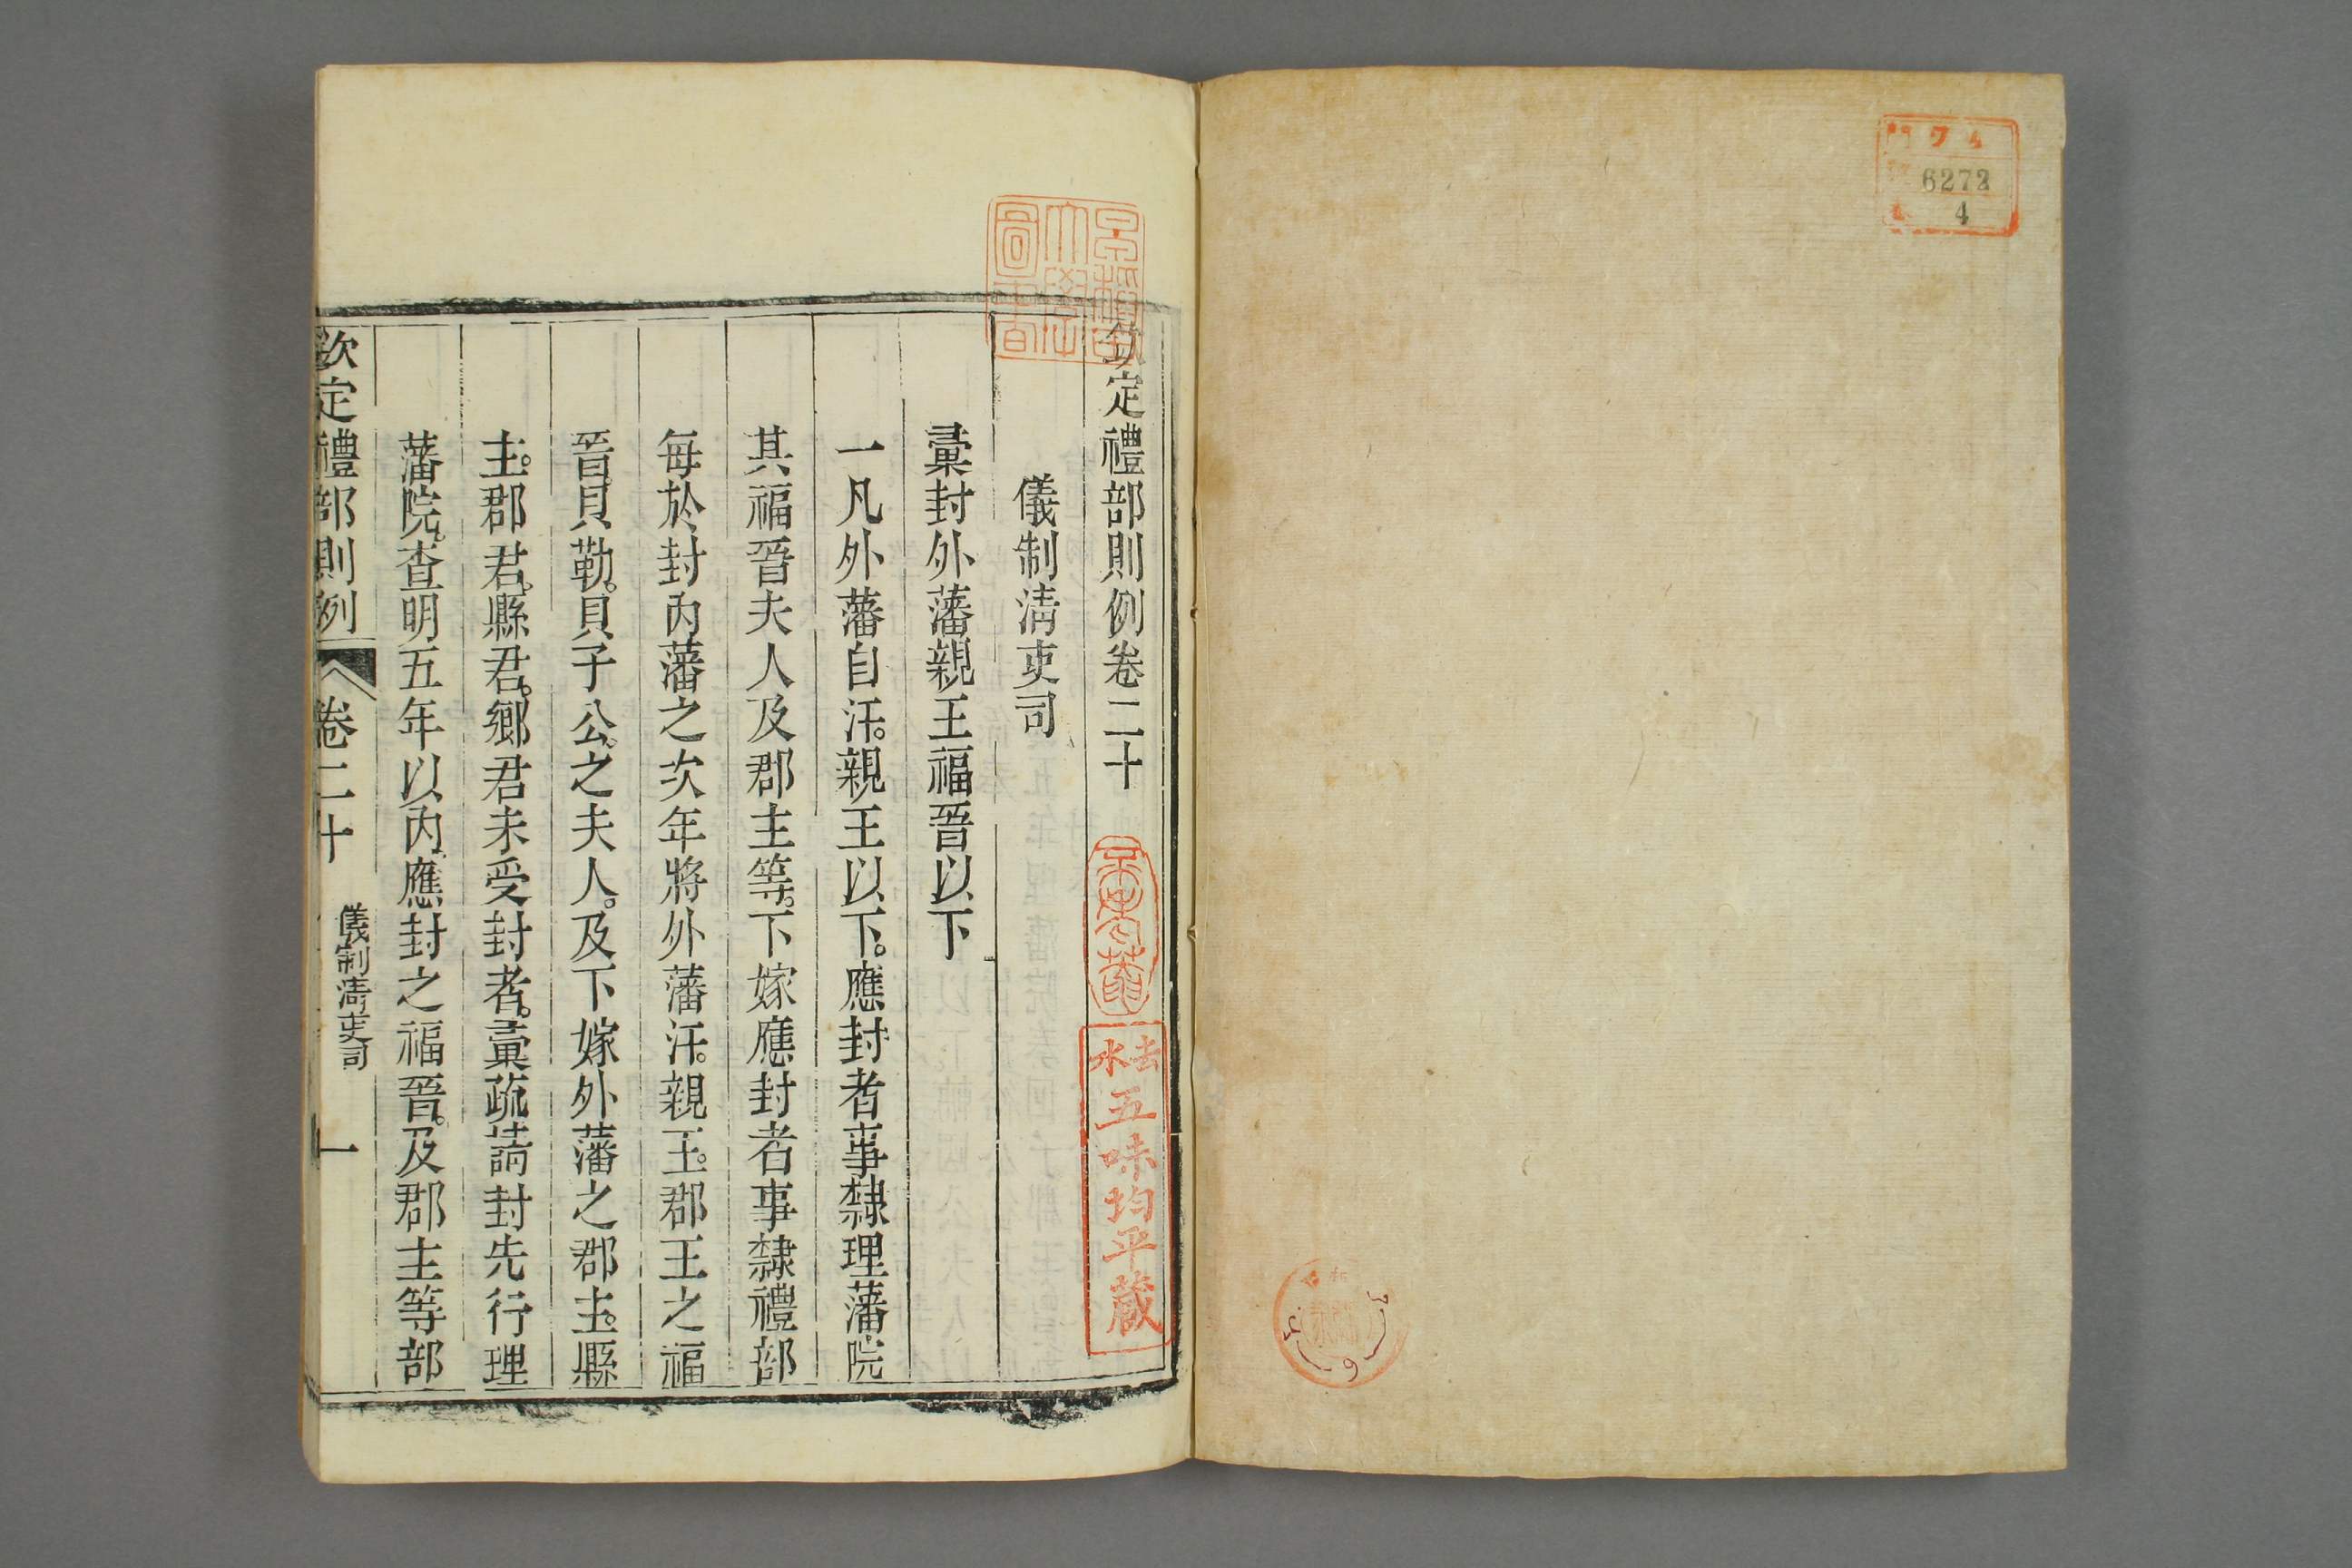 欽定禮部則例卷二十
儀制淸吏司
彙封外藩親王福晉以下
一凡外藩自汗。親王以下。應封者事隸理藩院
其福晉夫人及郡主等。下嫁應封者事隸禮部
每於封內藩之次年將外藩汗。親王。郡王之福
晉貝勒。貝子公。之夫人。及下嫁外藩之郡主。縣
主。郡君。縣君。鄉君未受封者。彙疏請封先行理
藩院。查明五年以內應封之福晉。及郡主等部
欽定禮部則例 卷二十 儀制淸吏司 一
早稻田大學圖書
去水
五味均平蔵
6272
4